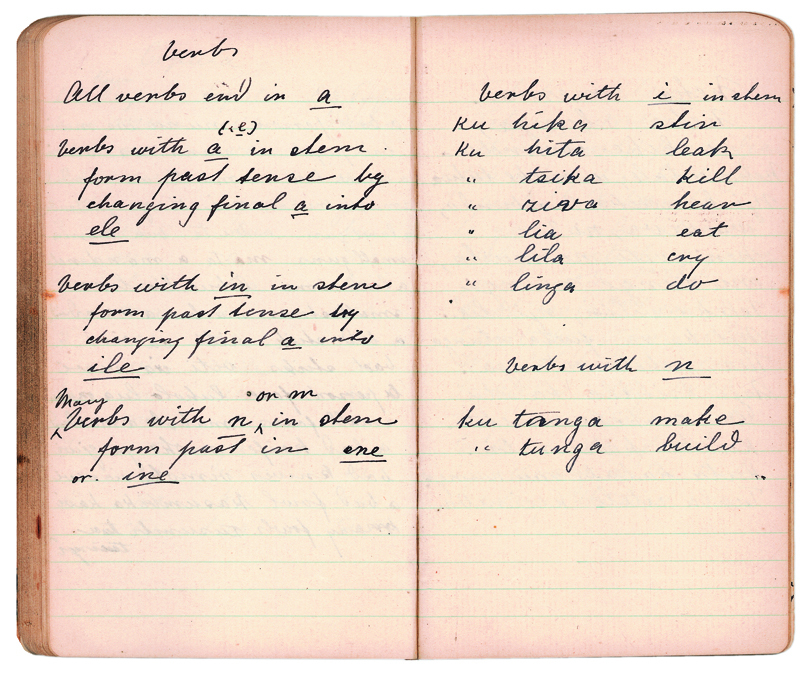 Verbs
All verbs end in a
(i.e)
Verbs with a in stem.
form past tense by
changing final a into
ele
Verbs with in in stem
form past tense by
changing final a into
ile
Many or m
Verbs with n in stem
form past in ene
or. ine
Verbs with i in stem
ku hika stir
ku hita leak
" tsika kill
" ziva hear
" lia eat
" lila cry
" linga do
Verbs with n
ku tanga make
" tunga build